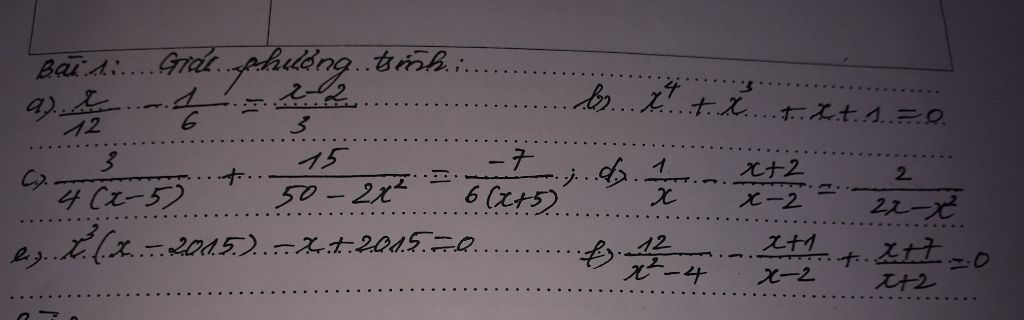 Bài 1: Giải phương trình:
a) x/12 - 1/6 = x-2/3 b) x⁴ + x³ + x + 1 = 0
c) 3/4(x-5) + 15/50-2x² = -7/6(x+5); d) 1/x - x+2/x-2 = 2/2x-x²
e) x³(x-2015) - x + 2015 = 0 f) 12/x²-4 - x+1/x-2 + x+7/x+2 = 0